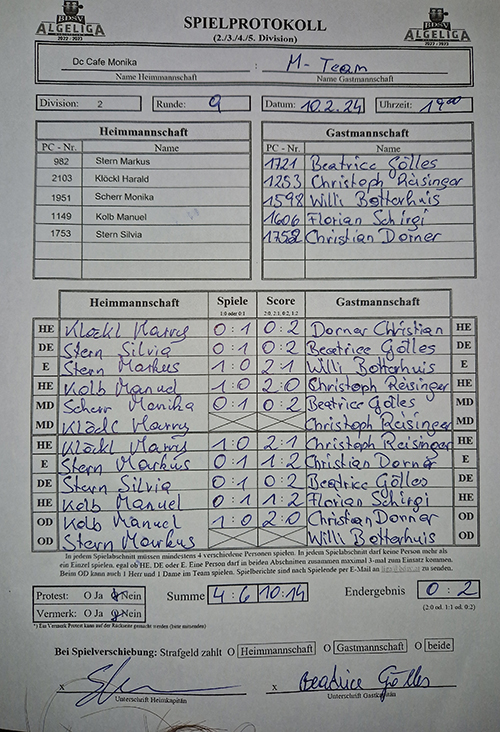 BDSV
ALGELIGA
2022 - 2023
SPIELPROTOKOLL
(2./3./4./5. Division)
BDSV
ALGELIGA
2022 - 2023
Dc Cafe Monika : M- Team
Name Heimmannschaft Name Gastmannschaft
Division: 2 Runde: 9 Datum: 10.2.24 Uhrzeit: 19°°
Heimmannschaft Gastmannschaft
PC - Nr. Name PC - Nr. Name
982 Stern Markus 1721 Beatrice Gölles
2103 Klöckl Harald 1253 Christoph Reisinger
1951 Scherr Monika 1598 Willi Botterhuis
1149 Kolb Manuel 1606 Florian Schirgi
1753 Stern Silvia 1752 Christian Dorner
Heimmannschaft Spiele Score Gastmannschaft
1:0 oder 0:1 2:0, 2:1, 0:2, 1:2
HE Klöckl Harry 0 : 1 0 : 2 Dorner Christian HE
DE Stern Silvia 0 : 1 0 : 2 Beatrice Gölles DE
E Stern Markus 1 : 0 2 : 1 Willi Botterhuis E
HE Kolb Manuel 1 : 0 2 : 0 Christoph Reisinger HE
MD Scherr Monika 0 : 1 0 : 2 Beatrice Gölles MD
MD Klöckl Harry Christoph Reisinger MD
HE Klöckl Harry 1 : 0 2 : 1 Christoph Reisinger HE
E Stern Markus 0 : 1 1 : 2 Christian Dorner E
DE Stern Silvia 0 : 1 0 : 2 Beatrice Gölles DE
HE Kolb Manuel 0 : 1 1 : 2 Florian Schirgi HE
OD Kolb Manuel 1 : 0 2 : 0 Christian Dorner OD
OD Stern Markus Willi Botterhuis OD
In jedem Spielabschnitt müssen mindestens 4 verschiedene Personen spielen. In jedem Spielabschnitt darf keine Person mehr als
ein Einzel spielen, egal ob HE, DE oder E. Eine Person darf in beiden Abschnitten zusammen maximal 3-mal zum Einsatz kommen.
Beim OD kann auch 1 Herr und 1 Dame im Team spielen. Spielberichte sind nach Spielende per E-Mail an zu senden.
Protest: O Ja O Nein Summe 4 : 6 10 : 14 Endergebnis 0 : 2
Vermerk: O Ja O Nein (2:0 od. 1:1 od. 0:2)
*) Ein Vermerk Protest kann auf der Rückseite gemacht werden (bitte ankreuzen)
Bei Spielverschiebung: Strafgeld zahlt O Heimmannschaft O Gastmannschaft O beide
x x Beatrice Gölles
Unterschrift Heimkapitän Unterschrift Gastkapitän